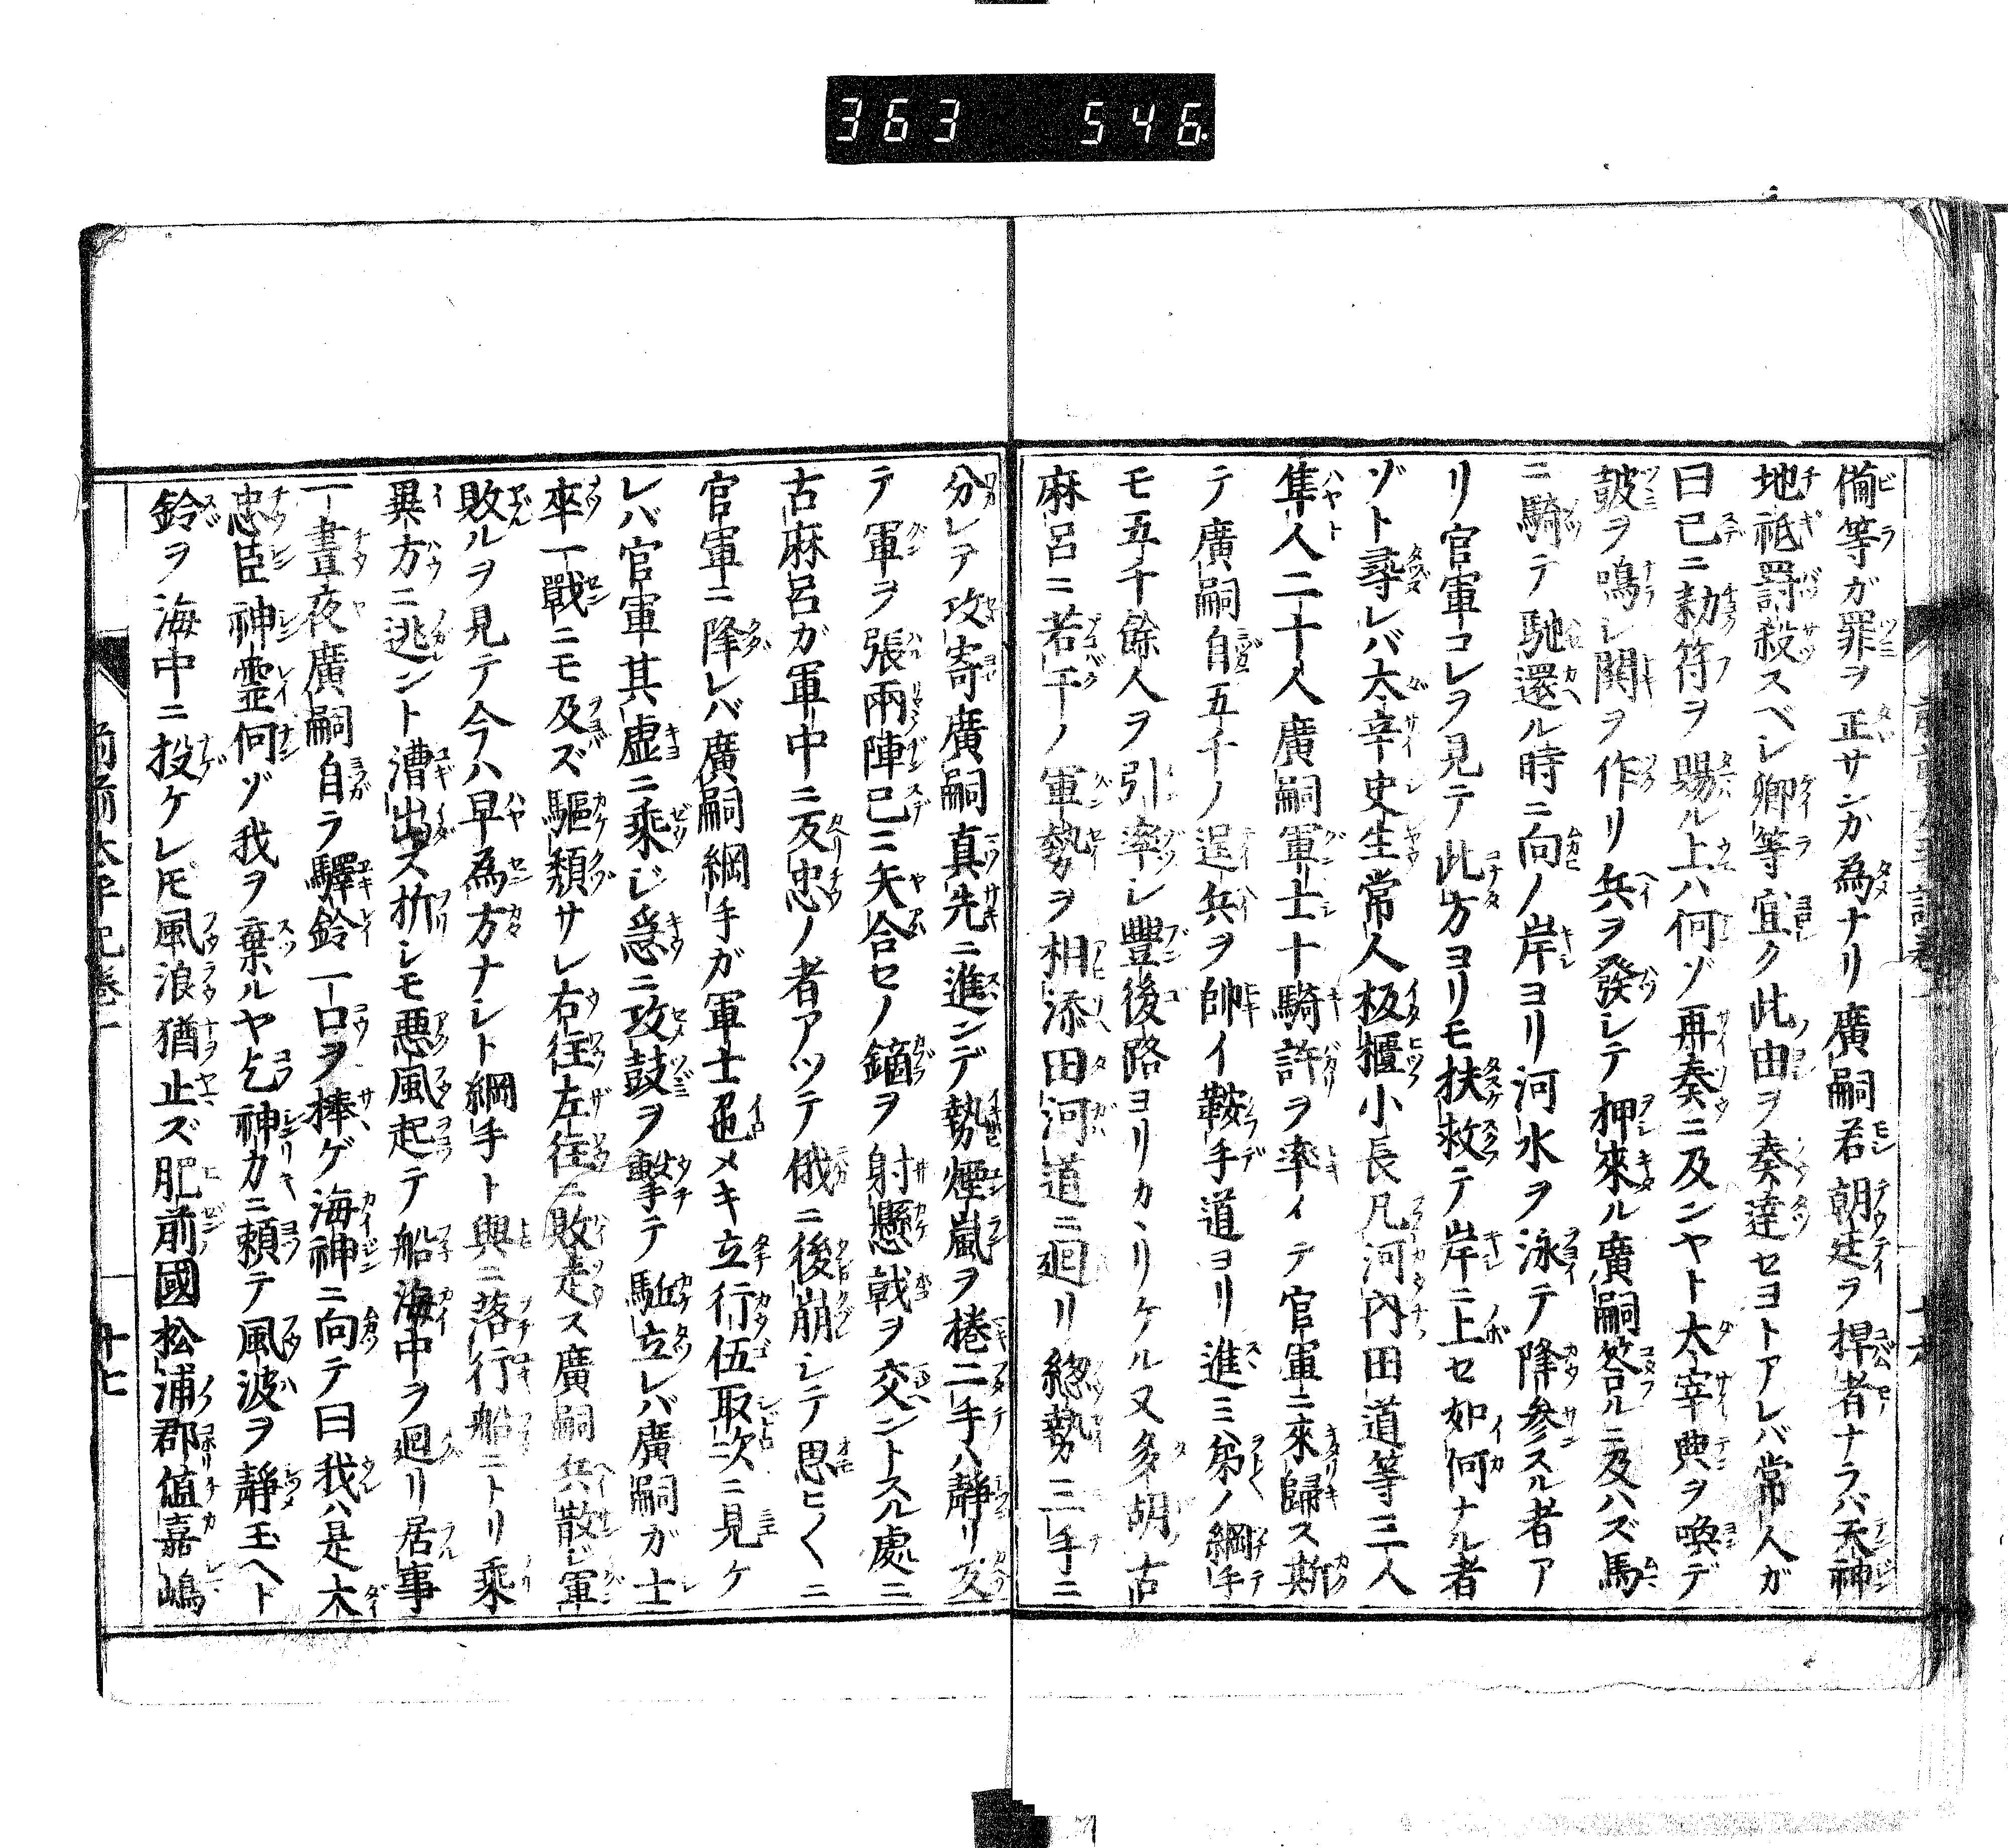 363 546
備等ガ罪ヲ正サンガ為ナリ廣嗣若朝廷ヲ捍者ナラバ天神
地祇罸殺スベシ卿等宜ク此由ヲ奏達セヨトアレバ常人ガ
曰已ニ勅符ヲ賜ル上ハ何ゾ再奏ニ及ンヤト太宰典ヲ喚デ
皷ヲ鳴シ関ヲ作リ兵ヲ發シテ押來ル廣嗣答ルニ及ハズ馬
ニ騎テ馳還ル時ニ向ノ岸ヨリ河水ヲ泳テ降参スル者ア
リ官軍コレヲ見テ此方ヨリモ扶救テ岸ニ上セ如何ナル者
ゾト尋レバ太宰史生常人板櫃小長凡河内田道等三人
隼人二十人廣嗣軍士十騎許ヲ率イテ官軍ニ來歸ス斯
テ廣嗣自五千ノ逞兵ヲ帥イ鞍手道ヨリ進ミ弟ノ綱手
モ五千餘人ヲ引率シ豐後路ヨリカヽリケル又多胡古
麻呂ニ若干ノ軍勢ヲ相添田河道ニ廻リ総勢三手ニ
分レテ攻寄廣嗣真先ニ進ンデ勢煙嵐ヲ捲二手ハ靜リ反
テ軍ヲ張兩陣已ニ矢合セノ鏑ヲ射懸戟ヲ交ントスル處ニ
古麻呂ガ軍中ニ反忠ノ者アツテ俄ニ後崩シテ思ヒ〱ニ
官軍ニ降レバ廣嗣綱手ガ軍士色メキ立行伍取次ニ見ケ
レバ官軍其虚ニ乘ジ急ニ攻鼓ヲ擊テ駈立レバ廣嗣ガ士
卒一戰ニモ及ズ驅類サレ右往左往ニ敗走ス廣嗣兵散ジ軍
敗ルヲ見テ今ハ早為方ナシト綱手ト與ニ落行船ニトリ乘
異方ニ逃ント漕出ス折シモ悪風起テ船海中ヲ廻リ居事
一晝夜廣嗣自ラ驛鈴一口ヲ捧ゲ海神ニ向テ曰我ハ是大
忠臣神霊何ゾ我ヲ棄ルヤ乞神力ニ頼テ風波ヲ靜玉ヘト
鈴ヲ海中ニ投ケレ𪜈風浪猶止ズ肥前國松浦郡値嘉嶋
前前太平記卷一 十七